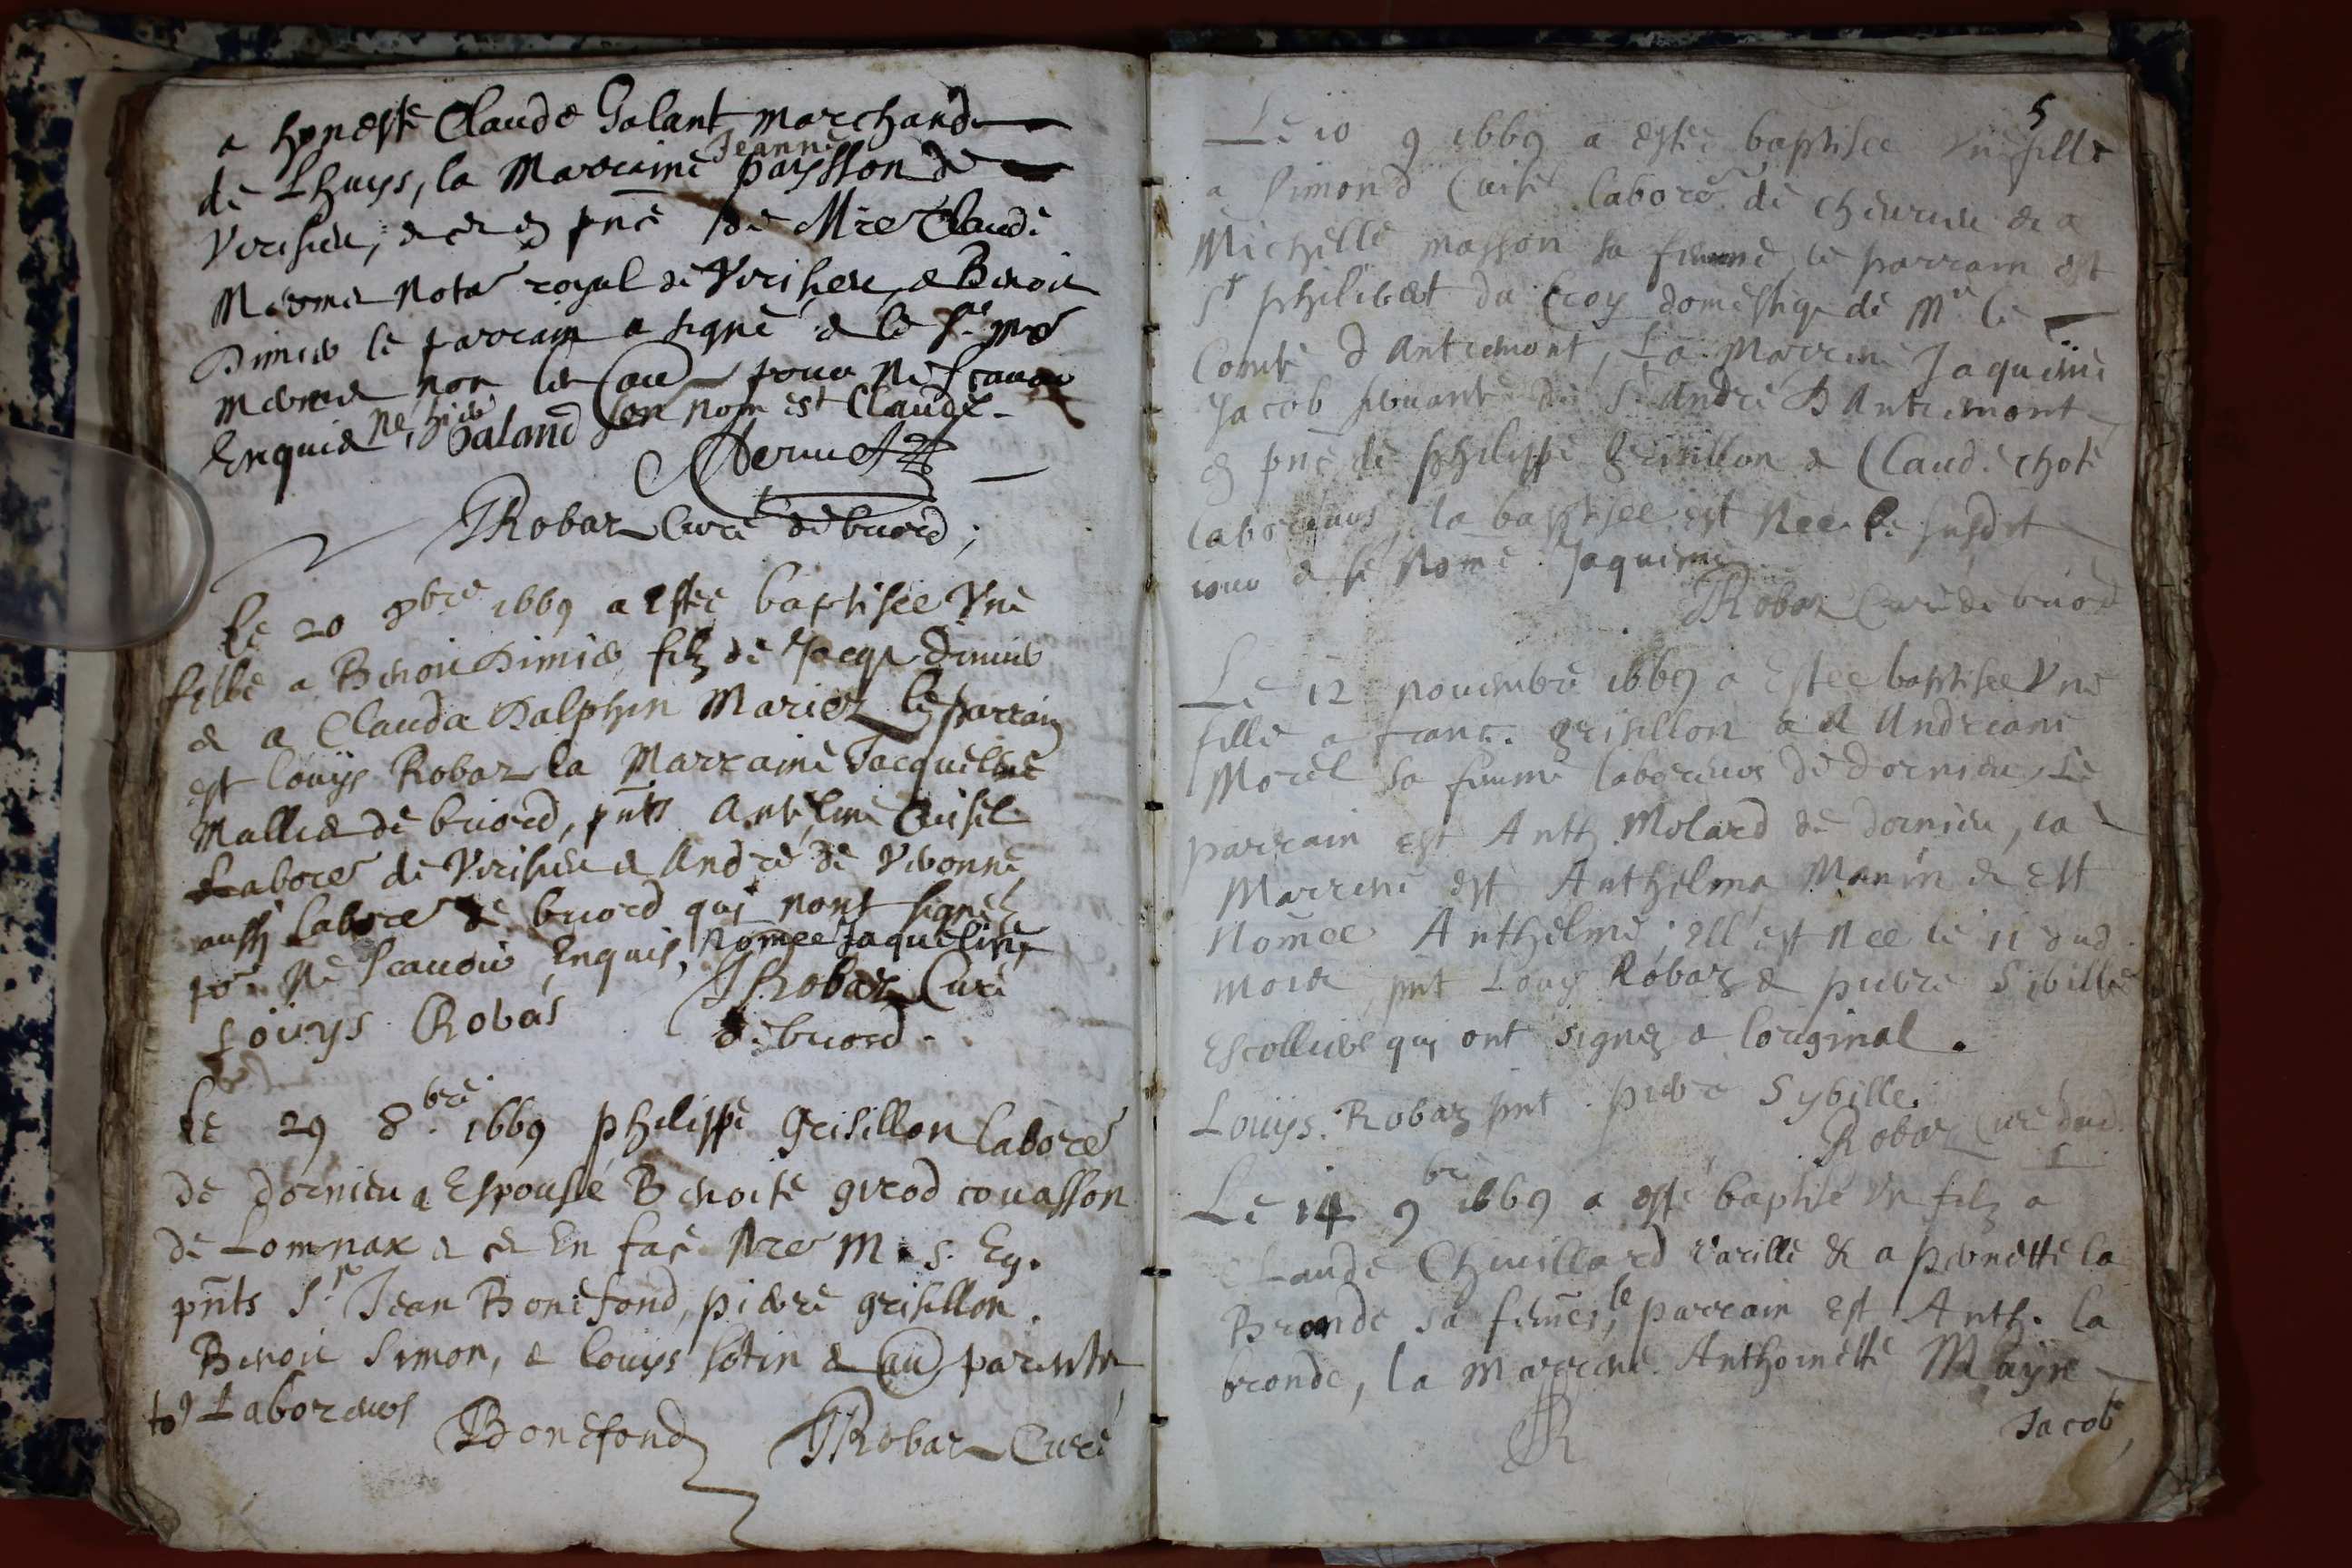 a honeste Claude Galant marchand
de Lhuys, la Marraine Jeanne paysson de
Virisieu, & ce en pnce de Mre Claude
notar royal de Virisieu, & Benoit
Dimier le parrain a signé & le Sr
non les pour ne scavoir
Enquis Galand son nom est Claude
JRobaz Curé de briord;
Le 20 8bre 1669 a Estée baptisée Vne
fille a Benoit Dimier filz de Jacq Dimier
& a Clauda Dalphin Mariez le parrain
est louys Robaz la Marraine Jacqueline
de briord, pnts Antelme Cuisel
Labore de Virisieu & André de Vivonne
aussi Labore de briord qui nont signéz
por ne scavoir Enquis, nomee Jaqueline
Louys Robas JRobaz Curé
de briord.
Le 29 8.bre 1669 philippe Grisillon labore
de dornieu a Espousé Benoite girod couasson
de Lompnax & ce En face nre M. s. Eg.
pnts Sr Jean Bonefond, pierre grisillon.
Benoit Simon, & louys sotin & parents
to9 Laboreurs
Bonefond JRobaz Curé
5
Le 10 9 1669 a estée baptisee Vne fille
a Simond labore de & a
Michelle masson sa femme, le parrain est
St philibert du Croy domestiq de Mr le
Comte d Antremont, La Marrene Jaqueme
Jacob servante du Sr André D Antremont
en pnce de philippe Grisillon & Claude chote
laboreurs, la baptisee est Née le susdit
iour & se nome Jaqueme
JRobaz Curé de briord
Le 12 novembre 1669 a Estee baptisee Vne
fille a franc. grisillon & a Andreane
Morel sa femme laboreurs de dornieu, Le
parrain est Anth Molard de dornieu, la
Marrene est Anthelma Manin & Est
Nomee Anthelme; Ell est Nee le 11 dud.
mois, pnt Louys Robaz & pierre Sibille
Escollier qui ont signez a loriginal.
Louys. Robaz pnt. pierre Sybille.
Robaz Curé dud.
Le 14 9bre 1669 a esté baptisé Vn filz a
Claude Chuillard & a pernette la
Bronde sa feme, le parrain est Anth. la
bronde, la Marrene Anthoinette Mayne
JR
Jacob